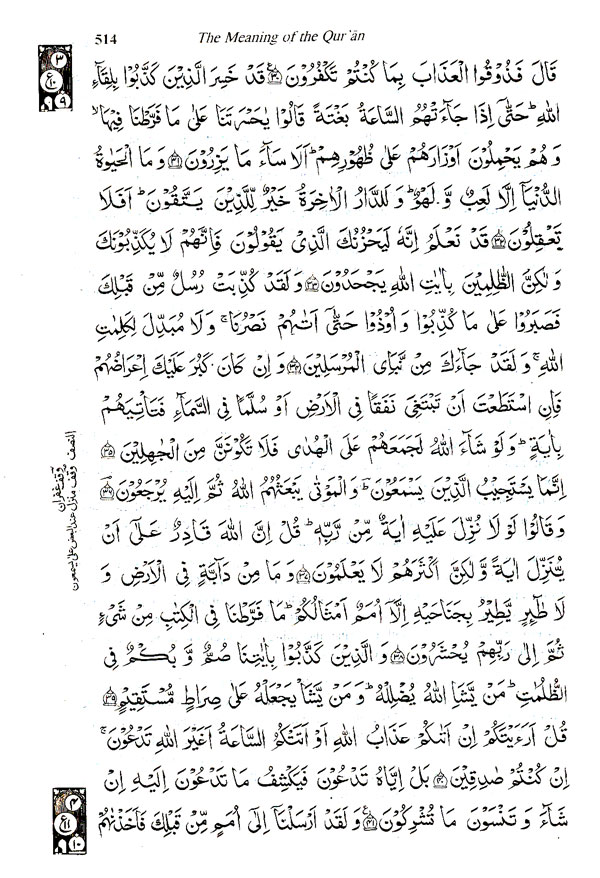 514 The Meaning of the Qur'ān
قَالَ فَذُوْقُوا الْعَذَابَ بِمَا كُنْتُمْ تَكْفُرُوْنَ ۳۰ قَدْ خَسِرَ الَّذِيْنَ كَذَّبُوْا بِلِقَآءِ
اللّٰهِ ؕ حَتّٰٓى اِذَا جَآءَتْهُمُ السَّاعَةُ بَغْتَةً قَالُوْا يٰحَسْرَتَنَا عَلٰى مَا فَرَّطْنَا فِيْهَا ۙ
وَهُمْ يَحْمِلُوْنَ اَوْزَارَهُمْ عَلٰى ظُهُوْرِهِمْ ؕ اَلَا سَآءَ مَا يَزِرُوْنَ ۳۱ وَمَا الْحَيٰوةُ
الدُّنْيَاۤ اِلَّا لَعِبٌ وَّلَهْوٌ ؕ وَلَلدَّارُ الْاٰخِرَةُ خَيْرٌ لِّلَّذِيْنَ يَتَّقُوْنَ ؕ اَفَلَا
تَعْقِلُوْنَ ۳۲ قَدْ نَعْلَمُ اِنَّهٗ لَيَحْزُنُكَ الَّذِيْ يَقُوْلُوْنَ فَاِنَّهُمْ لَا يُكَذِّبُوْنَكَ
وَلٰكِنَّ الظّٰلِمِيْنَ بِاٰيٰتِ اللّٰهِ يَجْحَدُوْنَ ۳۳ وَلَقَدْ كُذِّبَتْ رُسُلٌ مِّنْ قَبْلِكَ
فَصَبَرُوْا عَلٰى مَا كُذِّبُوْا وَاُوْذُوْا حَتّٰٓى اَتٰىهُمْ نَصْرُنَا ۚ وَلَا مُبَدِّلَ لِكَلِمٰتِ
اللّٰهِ ۚ وَلَقَدْ جَآءَكَ مِنْ نَّبَاِى الْمُرْسَلِيْنَ ۳۴ وَاِنْ كَانَ كَبُرَ عَلَيْكَ اِعْرَاضُهُمْ
فَاِنِ اسْتَطَعْتَ اَنْ تَبْتَغِيَ نَفَقًا فِي الْاَرْضِ اَوْ سُلَّمًا فِي السَّمَآءِ فَتَاْتِيَهُمْ
بِاٰيَةٍ ؕ وَلَوْ شَآءَ اللّٰهُ لَجَمَعَهُمْ عَلَى الْهُدٰى فَلَا تَكُوْنَنَّ مِنَ الْجٰهِلِيْنَ ۳۵
اِنَّمَا يَسْتَجِيْبُ الَّذِيْنَ يَسْمَعُوْنَ ؕ وَالْمَوْتٰى يَبْعَثُهُمُ اللّٰهُ ثُمَّ اِلَيْهِ يُرْجَعُوْنَ ۳۶
وَقَالُوْا لَوْ لَا نُزِّلَ عَلَيْهِ اٰيَةٌ مِّنْ رَّبِّهٖ ؕ قُلْ اِنَّ اللّٰهَ قَادِرٌ عَلٰٓى اَنْ
يُّنَزِّلَ اٰيَةً وَّلٰكِنَّ اَكْثَرَهُمْ لَا يَعْلَمُوْنَ ۳۷ وَمَا مِنْ دَآبَّةٍ فِي الْاَرْضِ وَ
لَا طٰٓئِرٍ يَّطِيْرُ بِجَنَاحَيْهِ اِلَّاۤ اُمَمٌ اَمْثَالُكُمْ ؕ مَا فَرَّطْنَا فِي الْكِتٰبِ مِنْ شَيْءٍ
ثُمَّ اِلٰى رَبِّهِمْ يُحْشَرُوْنَ ۳۸ وَالَّذِيْنَ كَذَّبُوْا بِاٰيٰتِنَا صُمٌّ وَّبُكْمٌ فِي
الظُّلُمٰتِ ؕ مَنْ يَّشَاِ اللّٰهُ يُضْلِلْهُ ؕ وَمَنْ يَّشَاْ يَجْعَلْهُ عَلٰى صِرَاطٍ مُّسْتَقِيْمٍ ۳۹
قُلْ اَرَءَيْتَكُمْ اِنْ اَتٰىكُمْ عَذَابُ اللّٰهِ اَوْ اَتَتْكُمُ السَّاعَةُ اَغَيْرَ اللّٰهِ تَدْعُوْنَ ۚ
اِنْ كُنْتُمْ صٰدِقِيْنَ ۴۰ بَلْ اِيَّاهُ تَدْعُوْنَ فَيَكْشِفُ مَا تَدْعُوْنَ اِلَيْهِ اِنْ
شَآءَ وَتَنْسَوْنَ مَا تُشْرِكُوْنَ ۴۱ وَلَقَدْ اَرْسَلْنَاۤ اِلٰٓى اُمَمٍ مِّنْ قَبْلِكَ فَاَخَذْنٰهُمْ
۳
ع ۱۰
۹
النصف
وقف غفران
وقف منزل
۴
ع ۱۱
۱۰